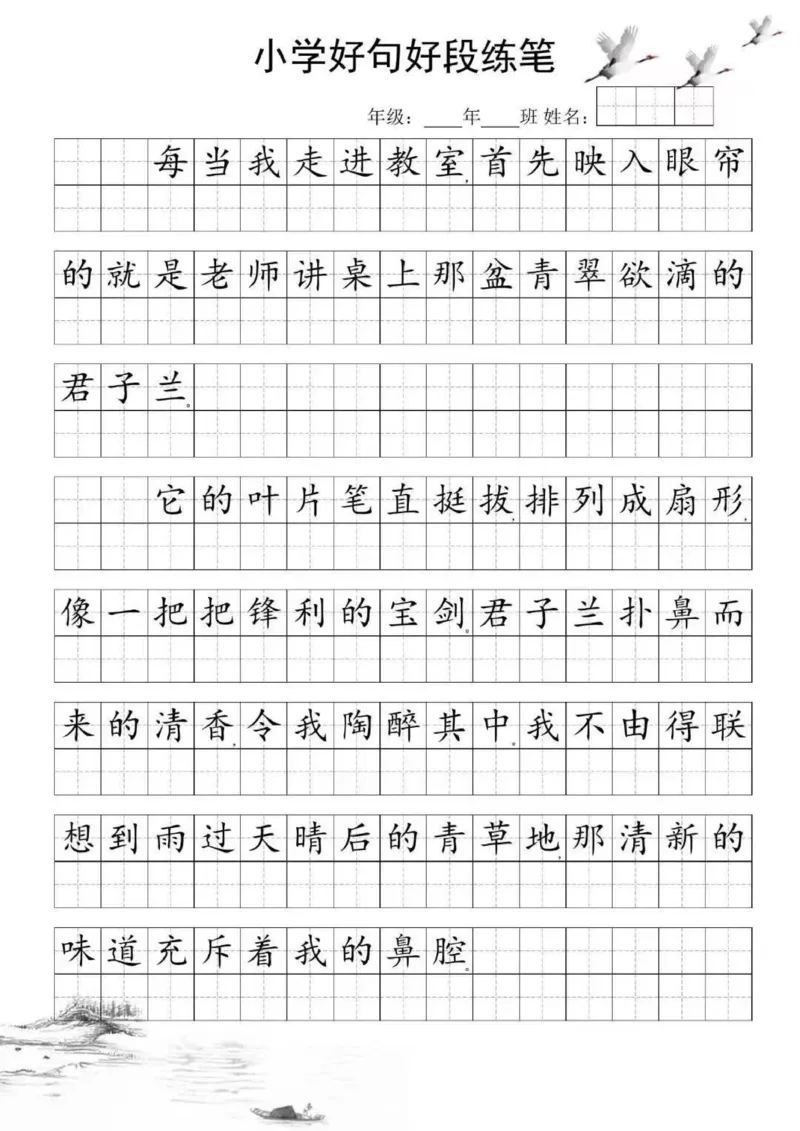 小学好句好段练笔
年级：____年____班 姓名：
每当我走进教室,首先映入眼帘
的就是老师讲桌上那盆青翠欲滴的
君子兰。
它的叶片笔直挺拔,排列成扇形,
像一把把锋利的宝剑。君子兰扑鼻而
来的清香,令我陶醉其中。我不由得联
想到雨过天晴后的青草地,那清新的
味道充斥着我的鼻腔。